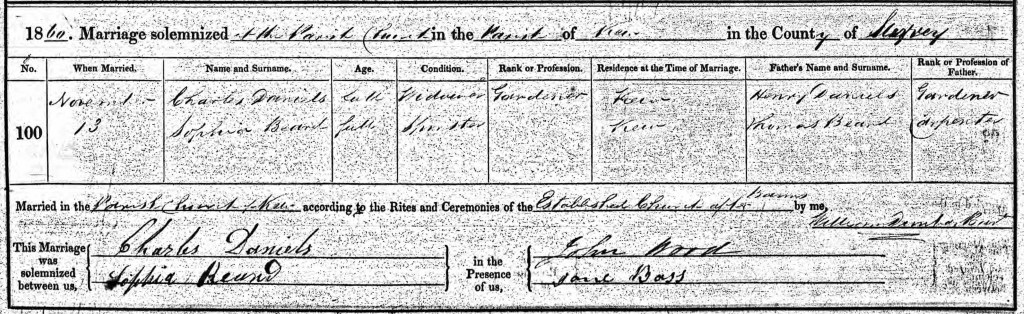 1860. Marriage solemnized at the Parish Church in the Parish of Kew in the County of Surrey
No. When Married. Name and Surname. Age. Condition. Rank or Profession. Residence at the Time of Marriage. Father's Name and Surname. Rank or Profession of Father.
November Charles Daniels full Widower Gardener Kew Henry Daniels Gardener
100 13 Sophia Beard full Spinster Kew Thomas Beard Carpenter
Married in the Parish Church of Kew according to the Rites and Ceremonies of the Established Church after Banns by me,
William
This Marriage was solemnized between us, Charles Daniels Sophia Beard in the Presence of us, John Wood Jane Bass